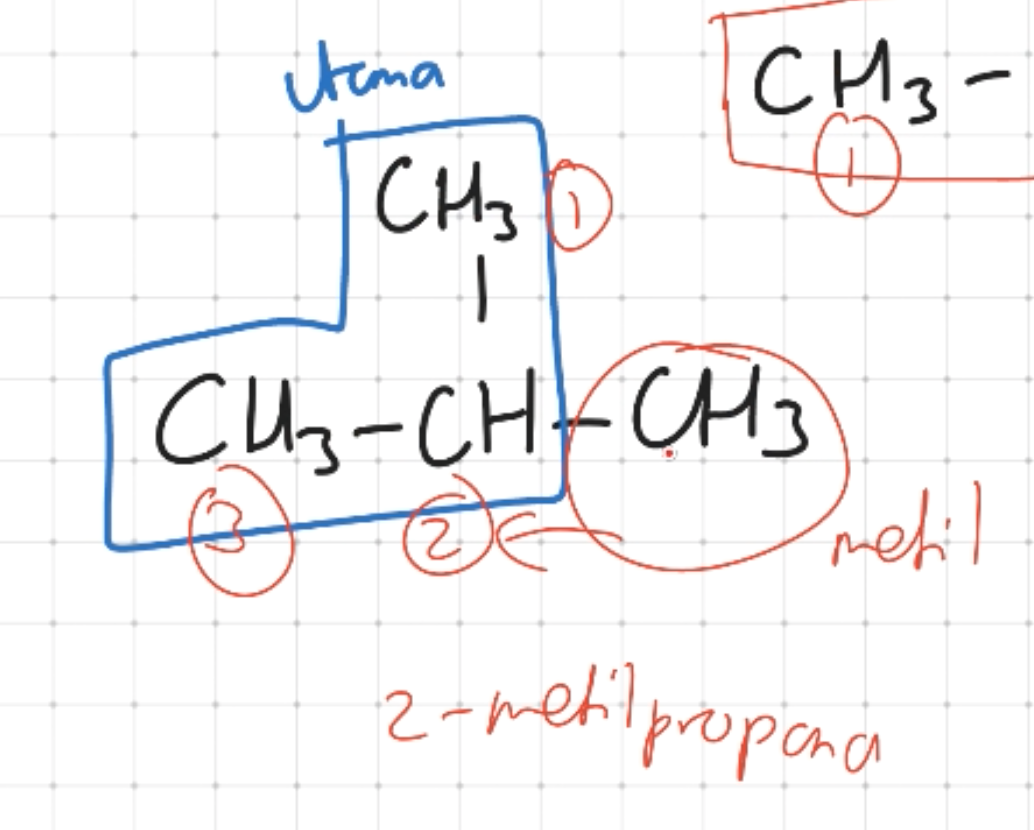 utama
CH3 -
1
CH3
1
|
CH3-CH-CH3
3
2
metil
2-metilpropana